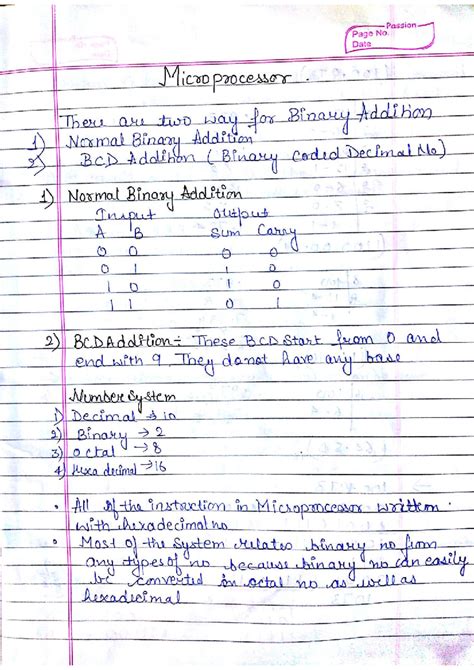 Passion
Page No.
Date
Microprocessor.
There are two way for Binary Addition
1) Normal Binary Addition
2) BCD Addition ( Binary Coded Decimal No)
1) Normal Binary Addition
Input Output
A B Sum Carry
0 0 0 0
0 1 1 0
1 0 1 0
1 1 0 1
2) BCD Addition :- These BCD Start from 0 and
end with 9. They donot have any base
Number System
1) Decimal → 10
2) Binary → 2
3) octal → 8
4) Hexa decimal → 16
• All of the instruction in Microprocessor written
with hexadecimal no
• Most of the System relates binary no from
any types of no because binary no can easily
be converted in octal no as well as
hexadecimal